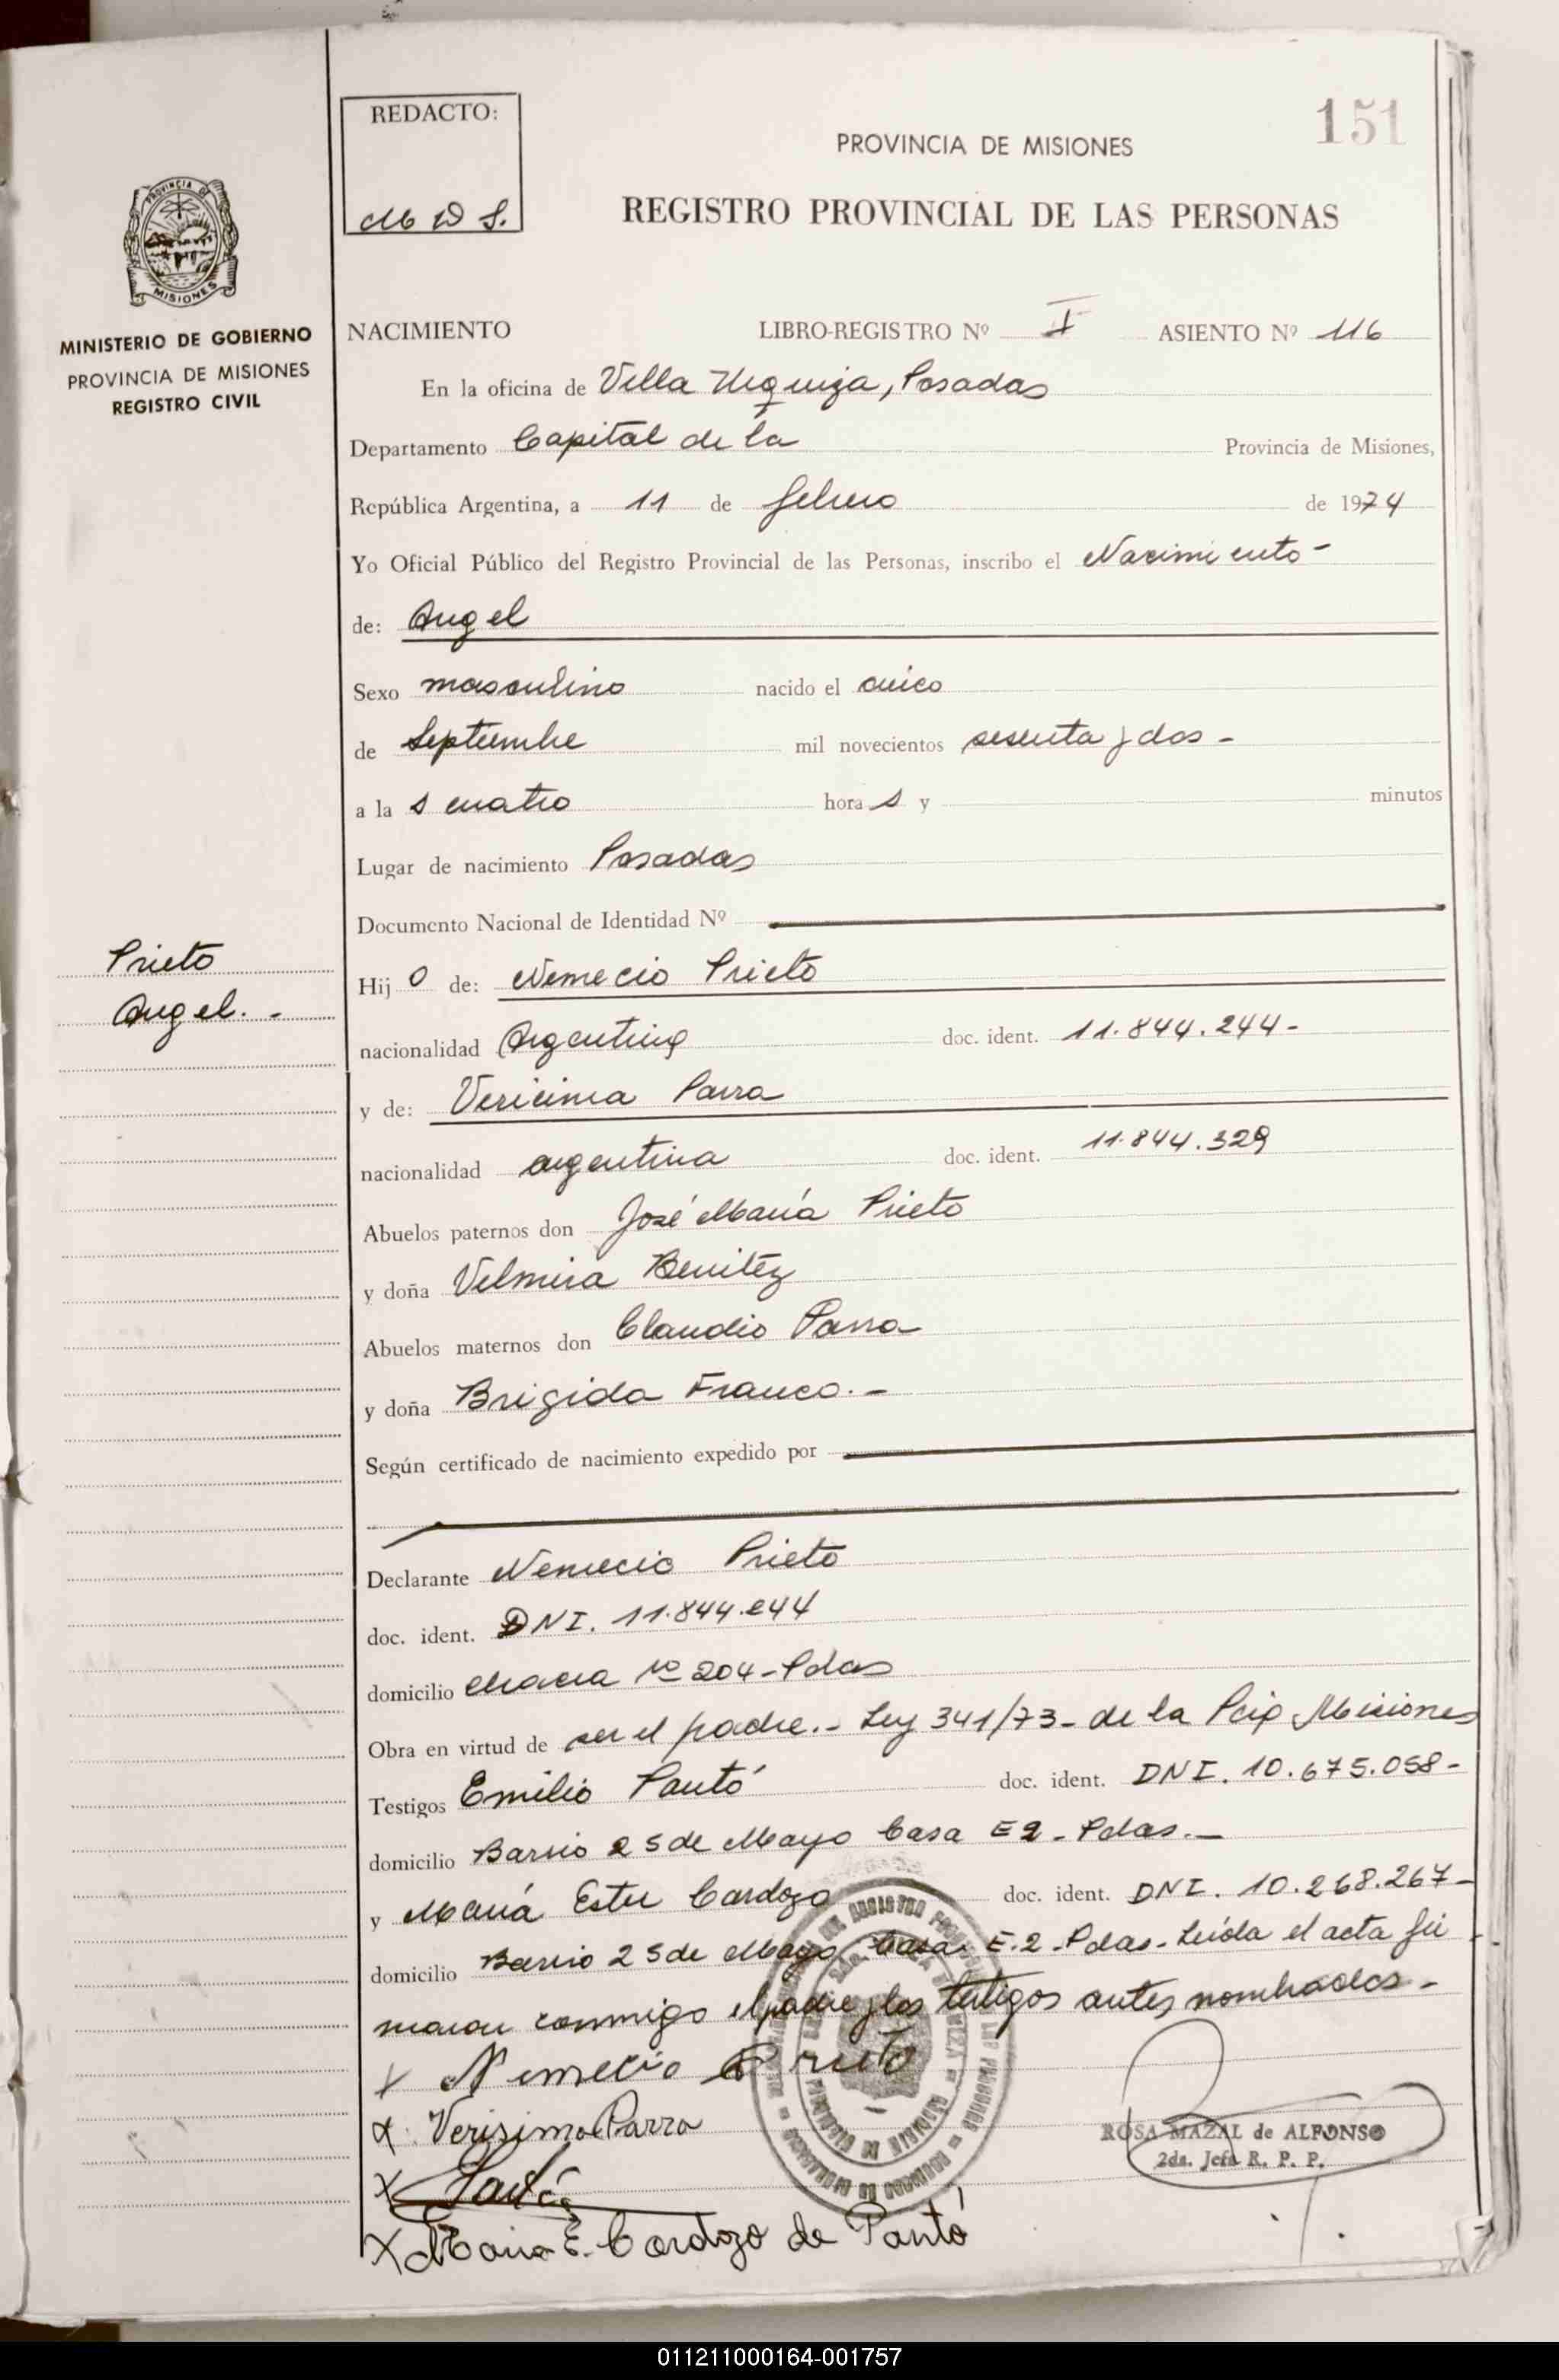 151
REDACTO:
M D S.
PROVINCIA DE MISIONES
REGISTRO PROVINCIAL DE LAS PERSONAS
PROVINCIA DE
MISIONES
MINISTERIO DE GOBIERNO
PROVINCIA DE MISIONES
REGISTRO CIVIL
NACIMIENTO LIBRO-REGISTRO Nº I ASIENTO Nº 116
En la oficina de Villa Urquiza, Posadas
Departamento Capital de la Provincia de Misiones,
República Argentina, a 11 de febrero de 1974
Yo Oficial Público del Registro Provincial de las Personas, inscribo el Nacimiento -
de: Angel
Sexo masculino nacido el cinco
de Septiembre mil novecientos sesenta y dos -
a la s cuatro hora s y minutos
Lugar de nacimiento Posadas
Documento Nacional de Identidad Nº
Prieto
Angel. -
Hij o de: Nemecio Prieto
nacionalidad Argentina doc. ident. 11.844.244-
y de: Vericima Parra
nacionalidad argentina doc. ident. 11.844.329
Abuelos paternos don José María Prieto
y doña Velmira Benitez
Abuelos maternos don Claudio Parra
y doña Brigida Franco.-
Según certificado de nacimiento expedido por
Declarante Nemecio Prieto
doc. ident. DNI. 11.844.244
domicilio chacra Nº 204-Pdas
Obra en virtud de ser el padre.- Ley 341/73- de la Pcia Misiones
Testigos Emilio Pantó doc. ident. DNI. 10.675.058-
domicilio Barrio 25 de Mayo Casa E2 - Pdas.-
y María Ester Cardozo doc. ident. DNI. 10.268.267-
domicilio Barrio 25 de Mayo Casa E.2 - Pdas - Leída el acta fir
maron conmigo el padre y los testigos antes nombrados.-
x Nemecio Prieto
x. Verisima Parra
x Pantó
x Maria E. Cardozo de Pantó
ROSA MAZAL de ALFONSO
2da. Jefa R. P. P.
011211000164-001757